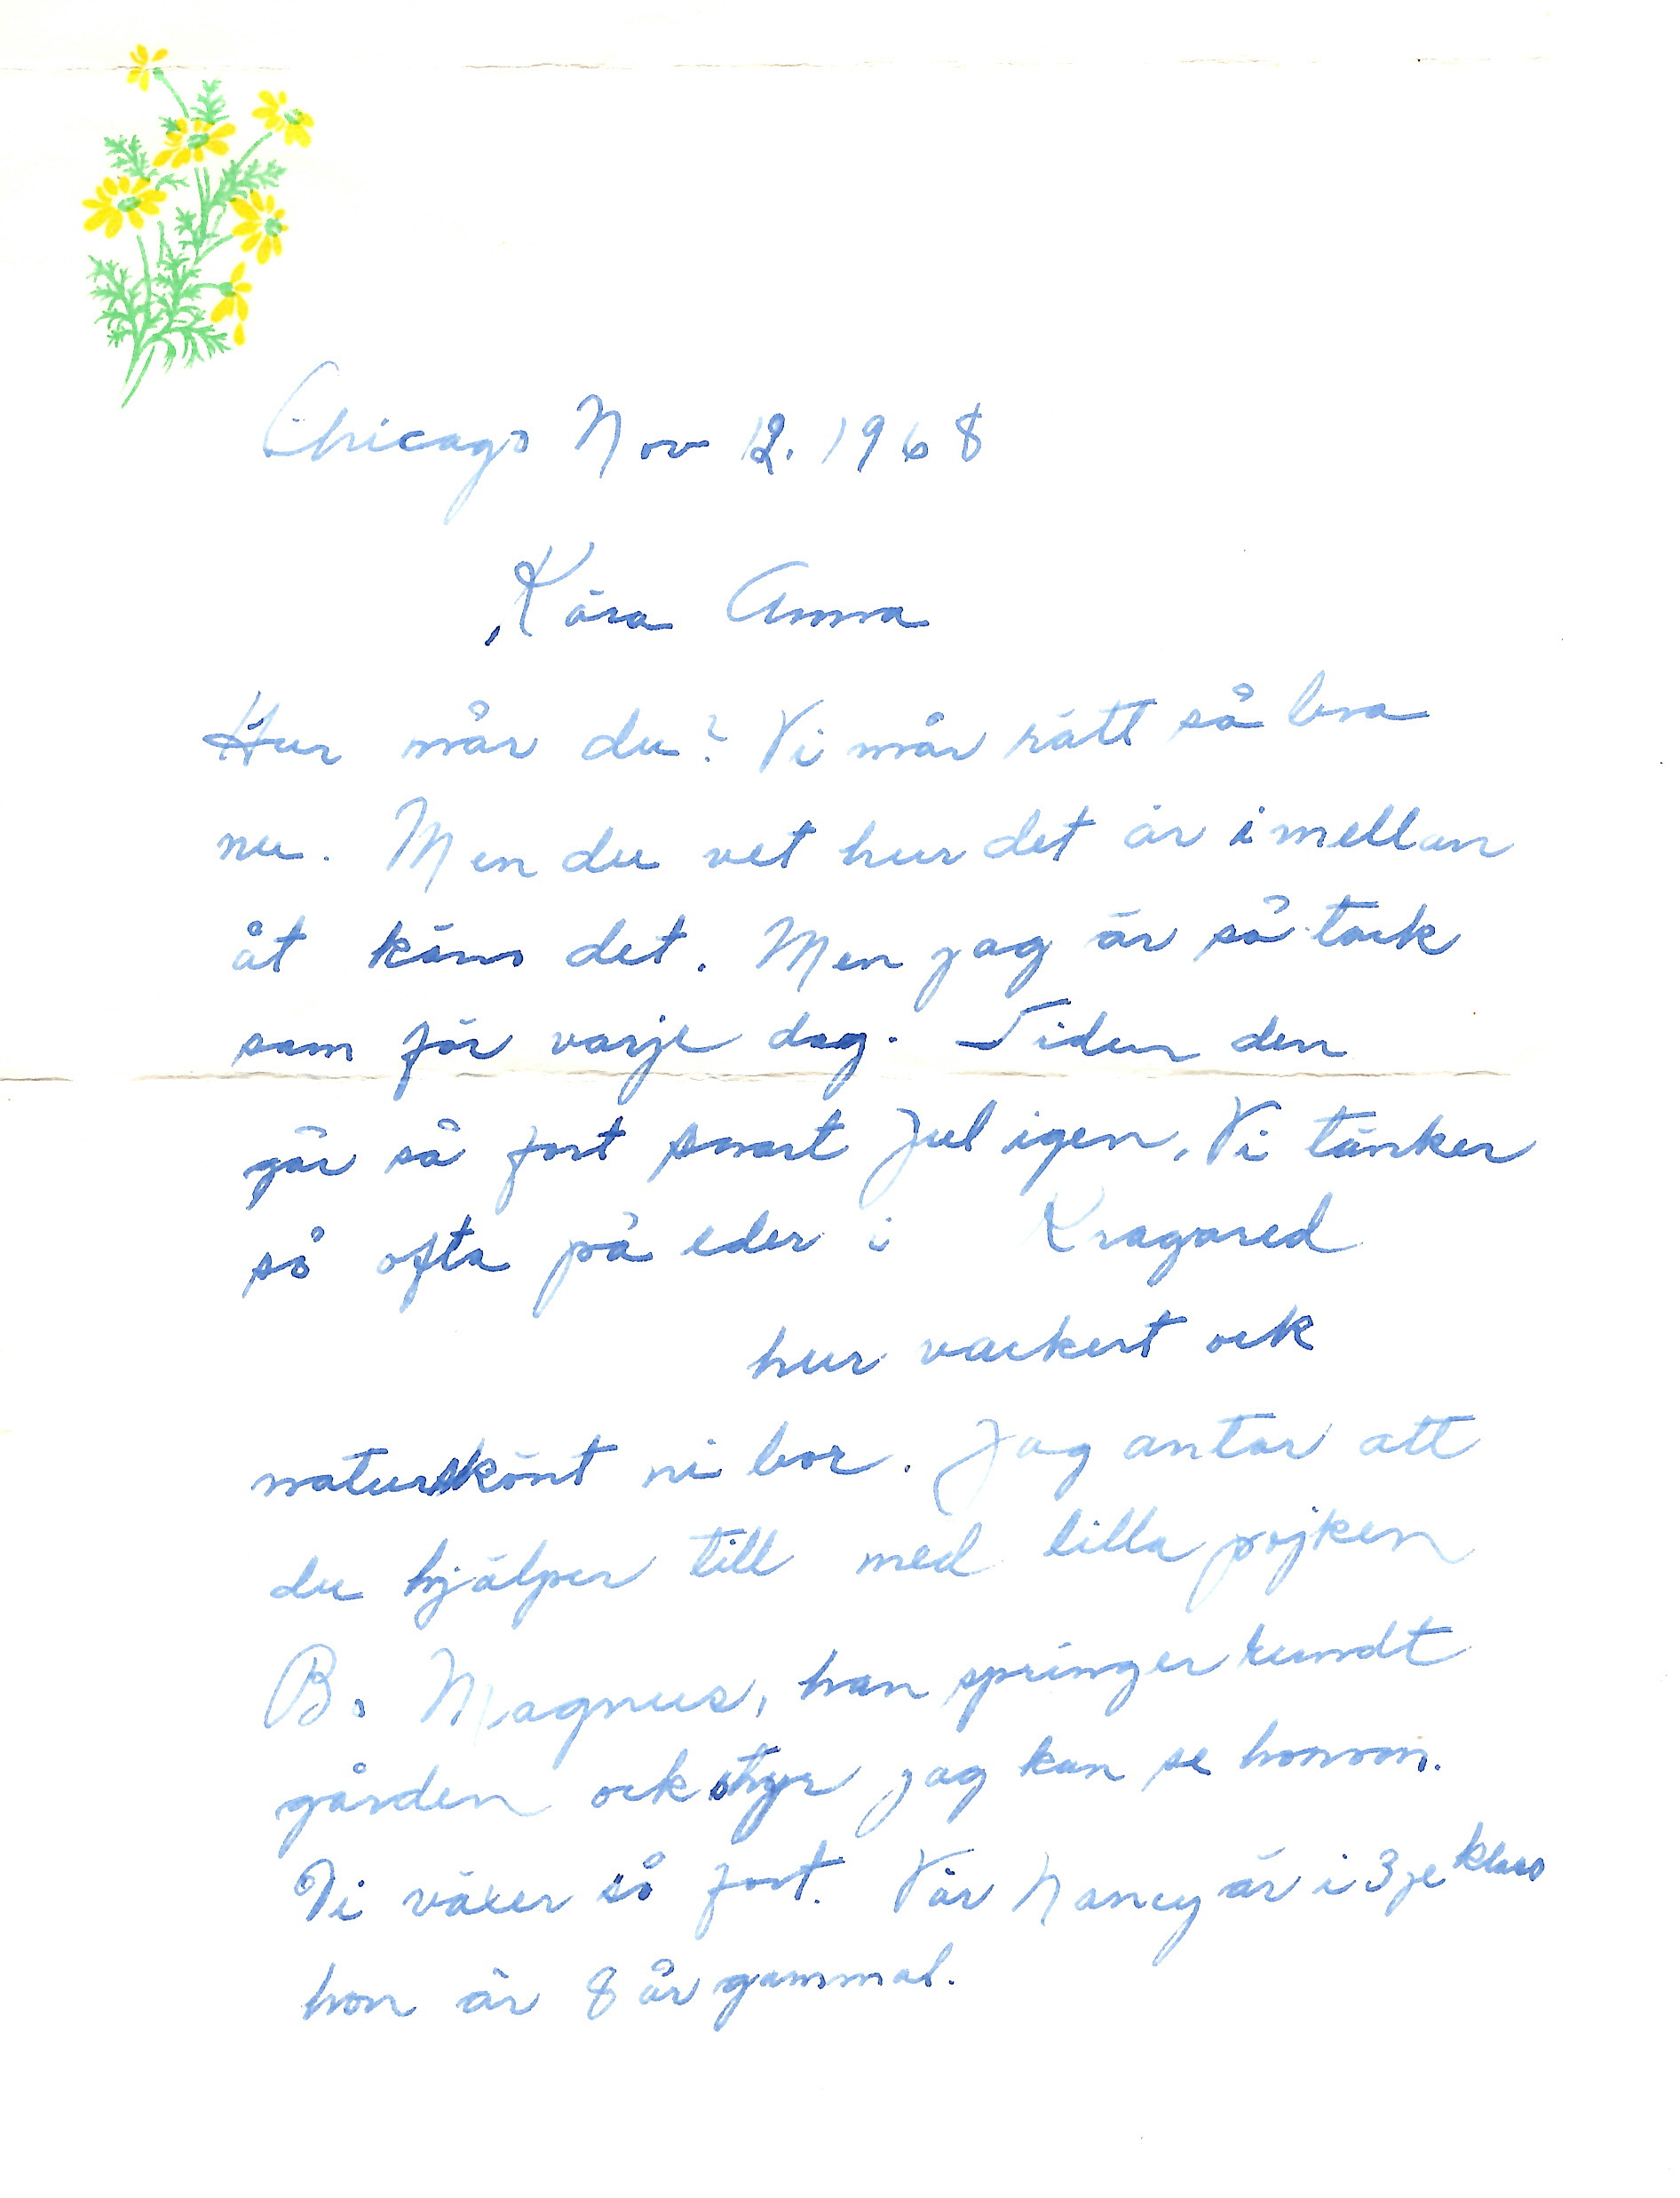 Chicago Nov 12. 1968
Kära Anna
Hur mår du? Vi mår rätt så bra
nu. Men du vet hur det är imellan
åt käns det. Men jag är så tack
sam för varje dag. Tiden den
går så fort snart Jul igen. Vi tänker
så ofta på eder i Kragared
hur vackert ock
naturskönt ni bor. Jag antar att
du hjälper till med lilla pojken
B. Magnus, han springer rundt
gården ock styr jag kan se honom.
Di växer så fort. Vår Nancy är i 3je klass
hon är 8 år gammal.